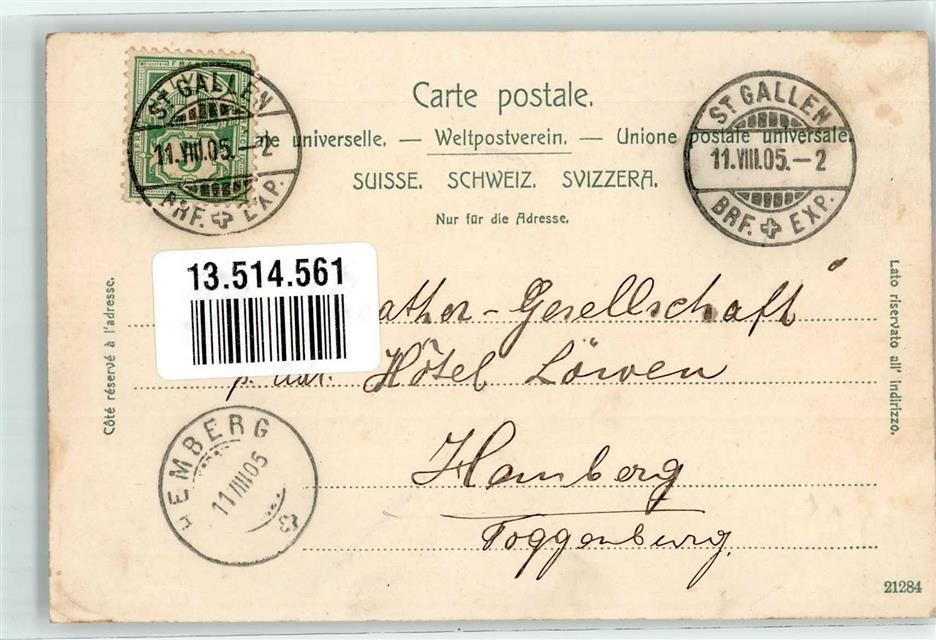 ST GALLEN
11.VIII.05.–2
BRF. EXP.
5
Carte postale.
ale universelle. — Weltpostverein. — Unione postale universale.
SUISSE. SCHWEIZ. SVIZZERA.
Nur für die Adresse.
ST GALLEN
11.VIII.05.–2
BRF. EXP.
13.514.561
Côté réservé à l'adresse.
Lato riservato all' indirizzo.
ather-Gesellschaft
Hôtel Löwen
Hemberg
Toggenburg.
HEMBERG
11/VIII05
21284